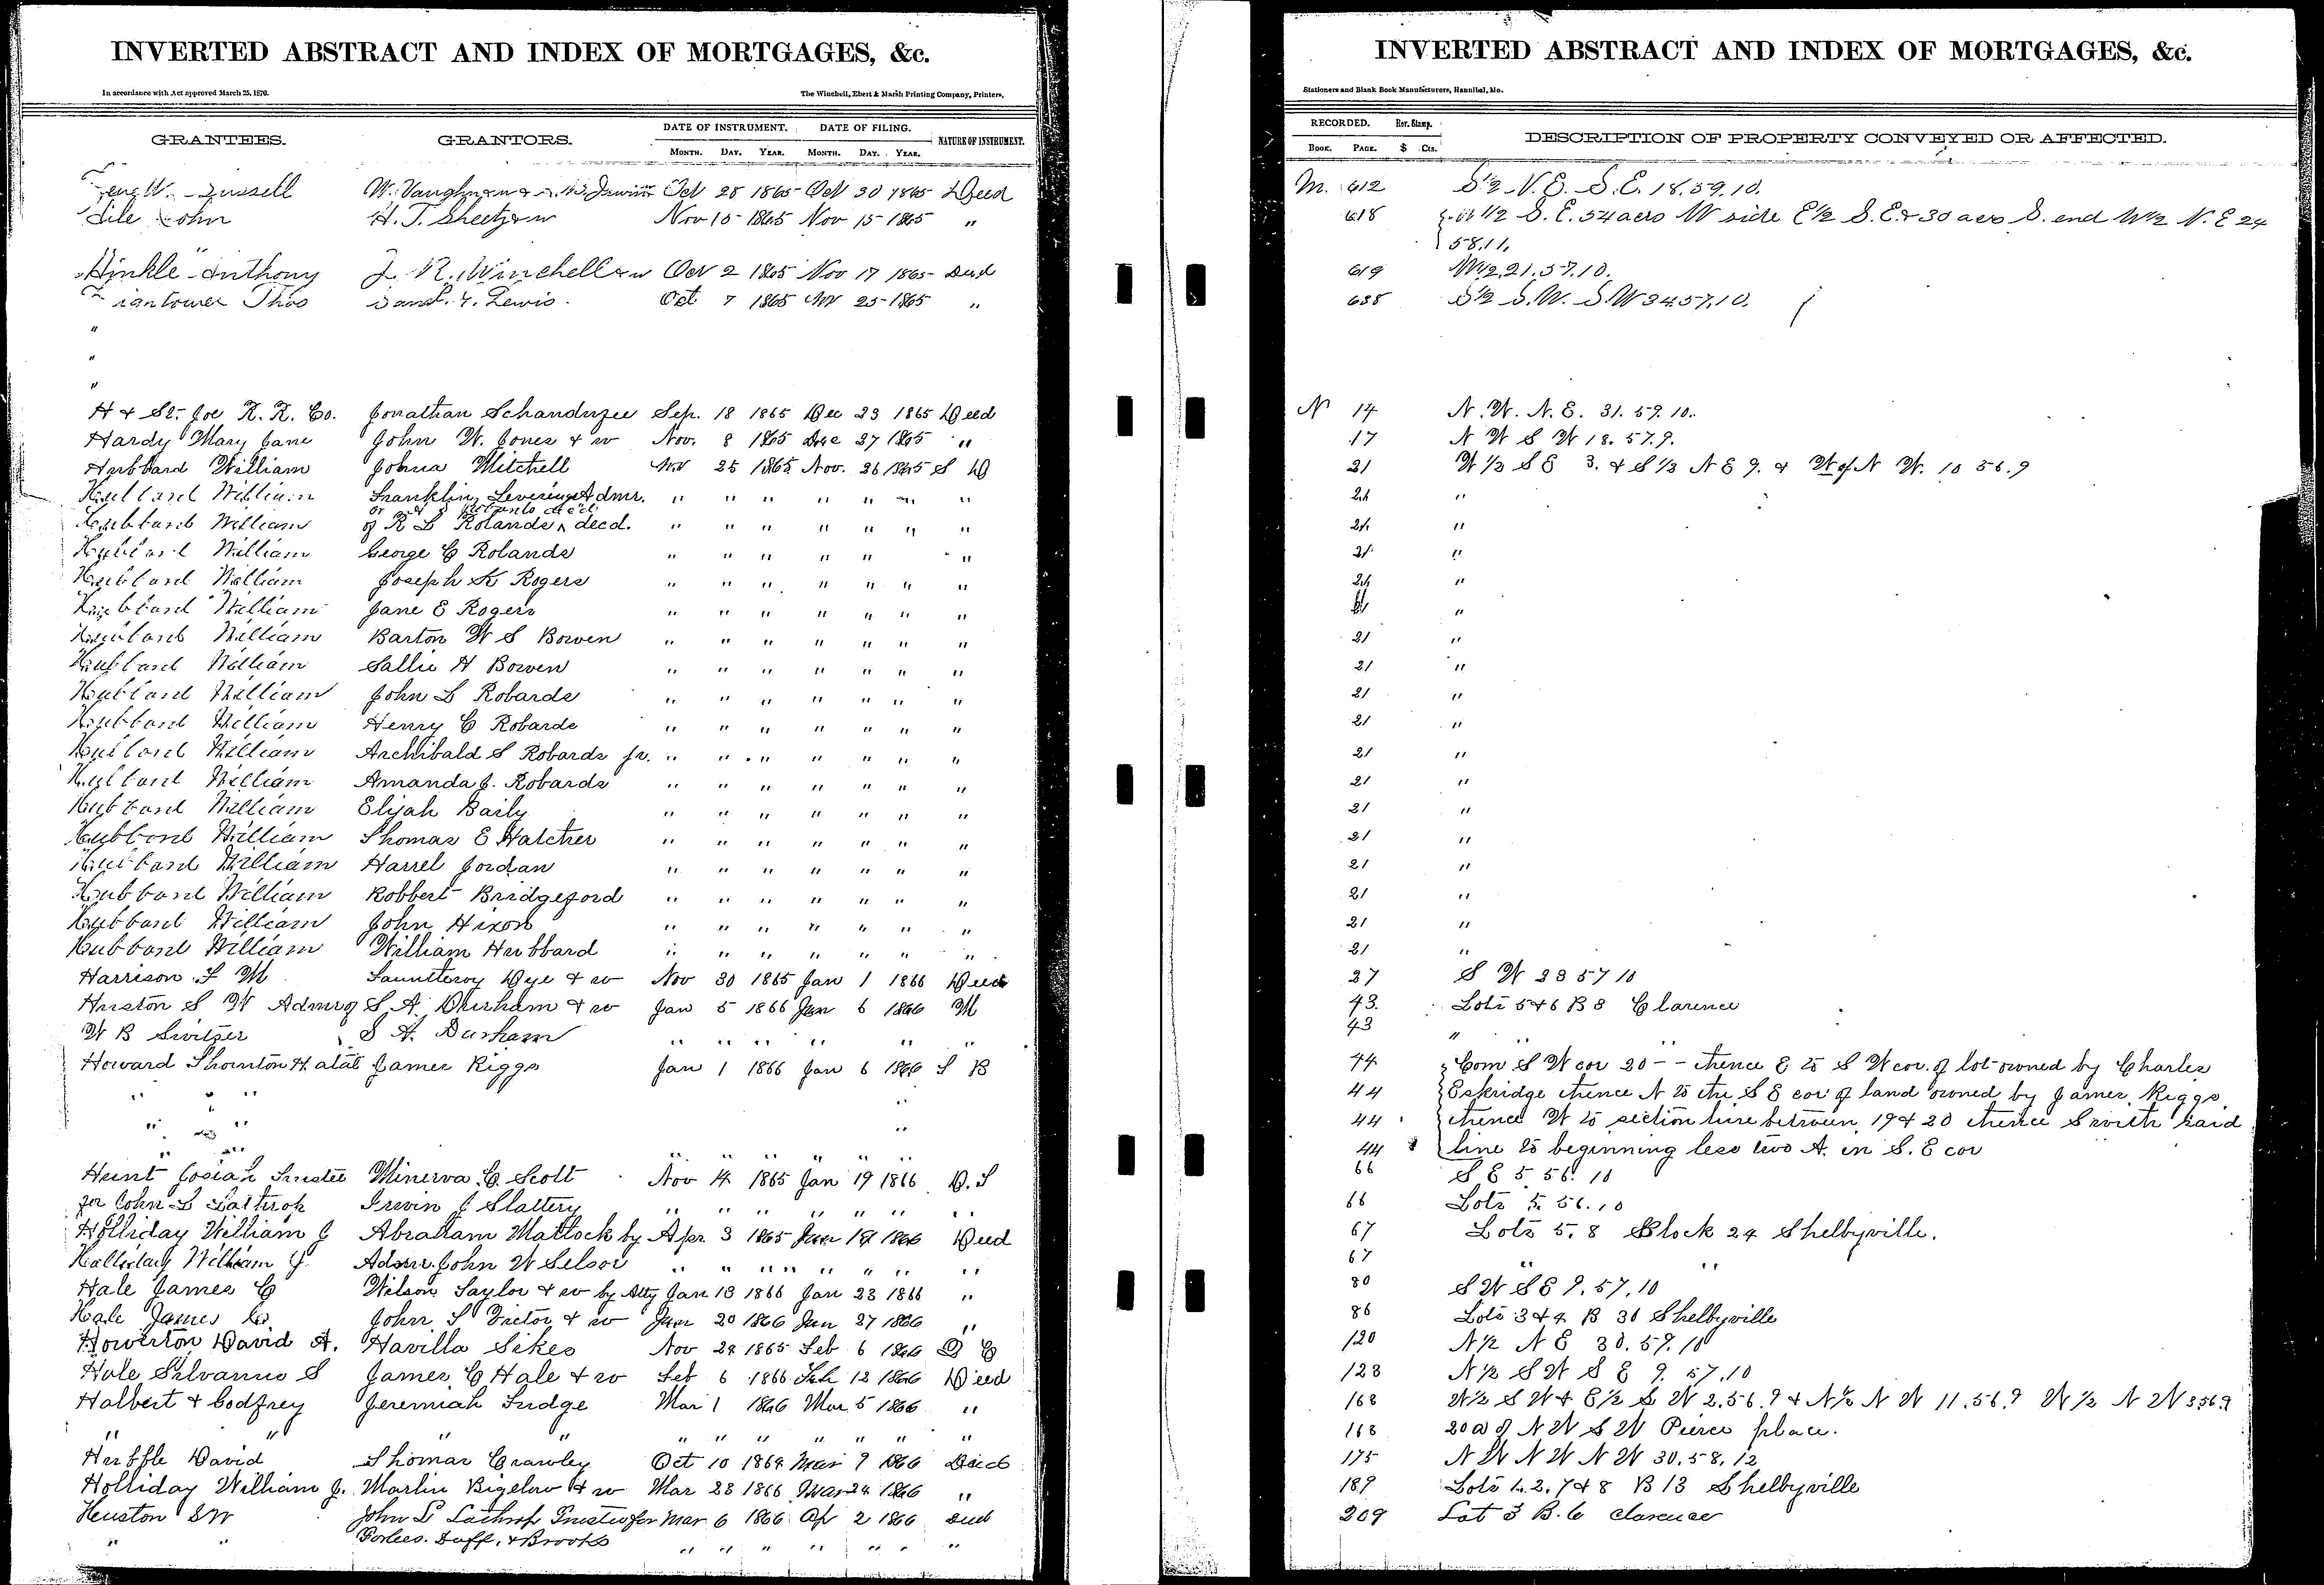 INVERTED ABSTRACT AND INDEX OF MORTGAGES, &c.
In accordance with Act approved March 25, 1870.
The Winchell, Ebert & Marsh Printing Company, Printers,
GRANTEES. GRANTORS. DATE OF INSTRUMENT. DATE OF FILING. NATURE OF INSTRUMENT.
MONTH. DAY. YEAR. MONTH. DAY. YEAR.
W. Vaughn Oct 28 1865 Oct 30 1865 Deed
John H. T. Sheetz & w Nov 15 1865 Nov 15 1865 "
Hinkle Anthony J. R. Winchell & w Oct 2 1865 Nov 17 1865 Deed
Thos Lewis Oct 7 1865 Nov 25 1865 "
"
"
"
H & St. Joe R. R. Co. Jonathan Sep. 18 1865 Dec 23 1865 Deed
Hardy Mary Jane John W. Jones & w Nov. 8 1865 Dec 27 1865 "
Hubbard William Johua Mitchell Nov 25 1865 Nov. 26 1865 S D
Hubbard William Franklin Levering Admr. " " " " " " "
Hubbard William of R L Rolands decd. " " " " " " "
Hubbard William George C Rolands " " " " " "
Hubbard William Joseph K Rogers " " " " " " "
Hubbard William Jane E Rogers " " " " " " "
Hubbard William Barton W S Bowen " " " " " " "
Hubbard William Sallie H Bowen " " " " " " "
Hubbard William John L Robards " " " " " " "
Hubbard William Henry C Robards " " " " " " "
Hubbard William Archibald S Robards jr. " " " " " " "
Hubbard William Amanda J. Robards " " " " " " "
Hubbard William Elijah Baily " " " " " " "
Hubbard William Thomas E Hatcher " " " " " " "
Hubbard William Harrel Jordan " " " " " " "
Hubbard William Robbert Bridgeford " " " " " " "
Hubbard William John Hixon " " " " " " "
Hubbard William William Hubbard " " " " " " "
Harrison T M Fauntleroy Dye & w Nov 30 1865 Jan 1 1866 Deed
Huston S W S. A. Durham & w Jan 5 1866 Jan 6 1866 M
W B Switzer S A. Durham " " " " " "
Howard Thornton H. James Riggs Jan 1 1866 Jan 6 1866 T B
" " " "
" " "
" " " " " " "
Hunt Josiah Trustee Minerva C. Scott Nov 14 1865 Jan 19 1866 D. T
for John L Lathrop Irwin J Slattery " " " " " " "
Holliday William J Abraham Mattock by Apr 3 1865 Jan 19 1866 Deed
Holliday William J. Admr John W Selsor " " " " " " "
Hale James C Wilson Taylor & w by Atty Jan 13 1866 Jan 23 1866 "
Hale James C. John S & w Jan 20 1866 Jan 27 1866 "
Howerton David A. Havilla Sikes Nov 24 1865 Feb 6 1866 Q C
Hale Silvanus S James C Hale & w Feb 6 1866 Feb 12 1866 Deed
Halbert & Godfrey Jeremiah Fudge Mar 1 1866 Mar 5 1866 "
" " " " " " " " " "
David Thomas Crawley Oct 10 1864 Mar 9 1866 Deed
Holliday William J. Martin Bigelow & w Mar 23 1866 Mar 24 1866 "
Heuston SW John L Lathrop Trustee for Mar 6 1866 Ap 2 1866 Deed
" " Forbes. Duff. & Brooks " " " " " " "
INVERTED ABSTRACT AND INDEX OF MORTGAGES, &c.
Stationers and Blank Book Manufacturers, Hannibal, Mo.
RECORDED. Rev. Stamp. DESCRIPTION OF PROPERTY CONVEYED OR AFFECTED.
BOOK. PAGE. $ Cts.
M. 612 S½ N. E. S. E. 18.59.10.
618 W ½ S. E. 54 acrs W side E½ S. E. & 30 acrs S. end W½ N. E 24
58.11.
619 W½.21.57.10.
638 S½ S. W. S. W 34.57.10.
N 14 N. W. N. E. 31. 59. 10.
17 N W S W 18. 57. 9.
21 W ½ S E 3. & S ½ N E 9. & W of N W. 10 56. 9
21 "
21 "
21 "
21 "
21 "
21 "
21 "
21 "
21 "
21 "
21 "
21 "
21 "
21 "
21 "
21 "
21 "
37 S W 28 57 10
43. Lots 5 & 6 B 8 Clarence
43 "
44 Com S W cor 20 - - thence E to S W cor. of lot owned by Charles
44 Eskridge thence N to the S E cor of land owned by James Riggs
44 thence W to section line between 19 & 20 thence S with said
44 line to beginning less two A. in S. E cor
66 S E 5 56. 10
66 Lots 5. 56. 10
67 Lots 5. 8 Block 24 Shelbyville.
67 "
80 S W S E 9. 57. 10
86 Lots 3 & 4 B 30 Shelbyville
120 N ½ N E 30. 59. 10
123 N ½ S W S E 9. 57. 10
168 W½ S W & E½ S W 2. 56. 9 & N½ N W 11. 56. 9 W ½ N W 3 56 9
168 20 a of N W S W Pierce place.
175 N W N W N W 30. 58. 12
189 Lots 1. 2. 7 & 8 B 13 Shelbyville
209 Lot 3 B. 6 Clarence